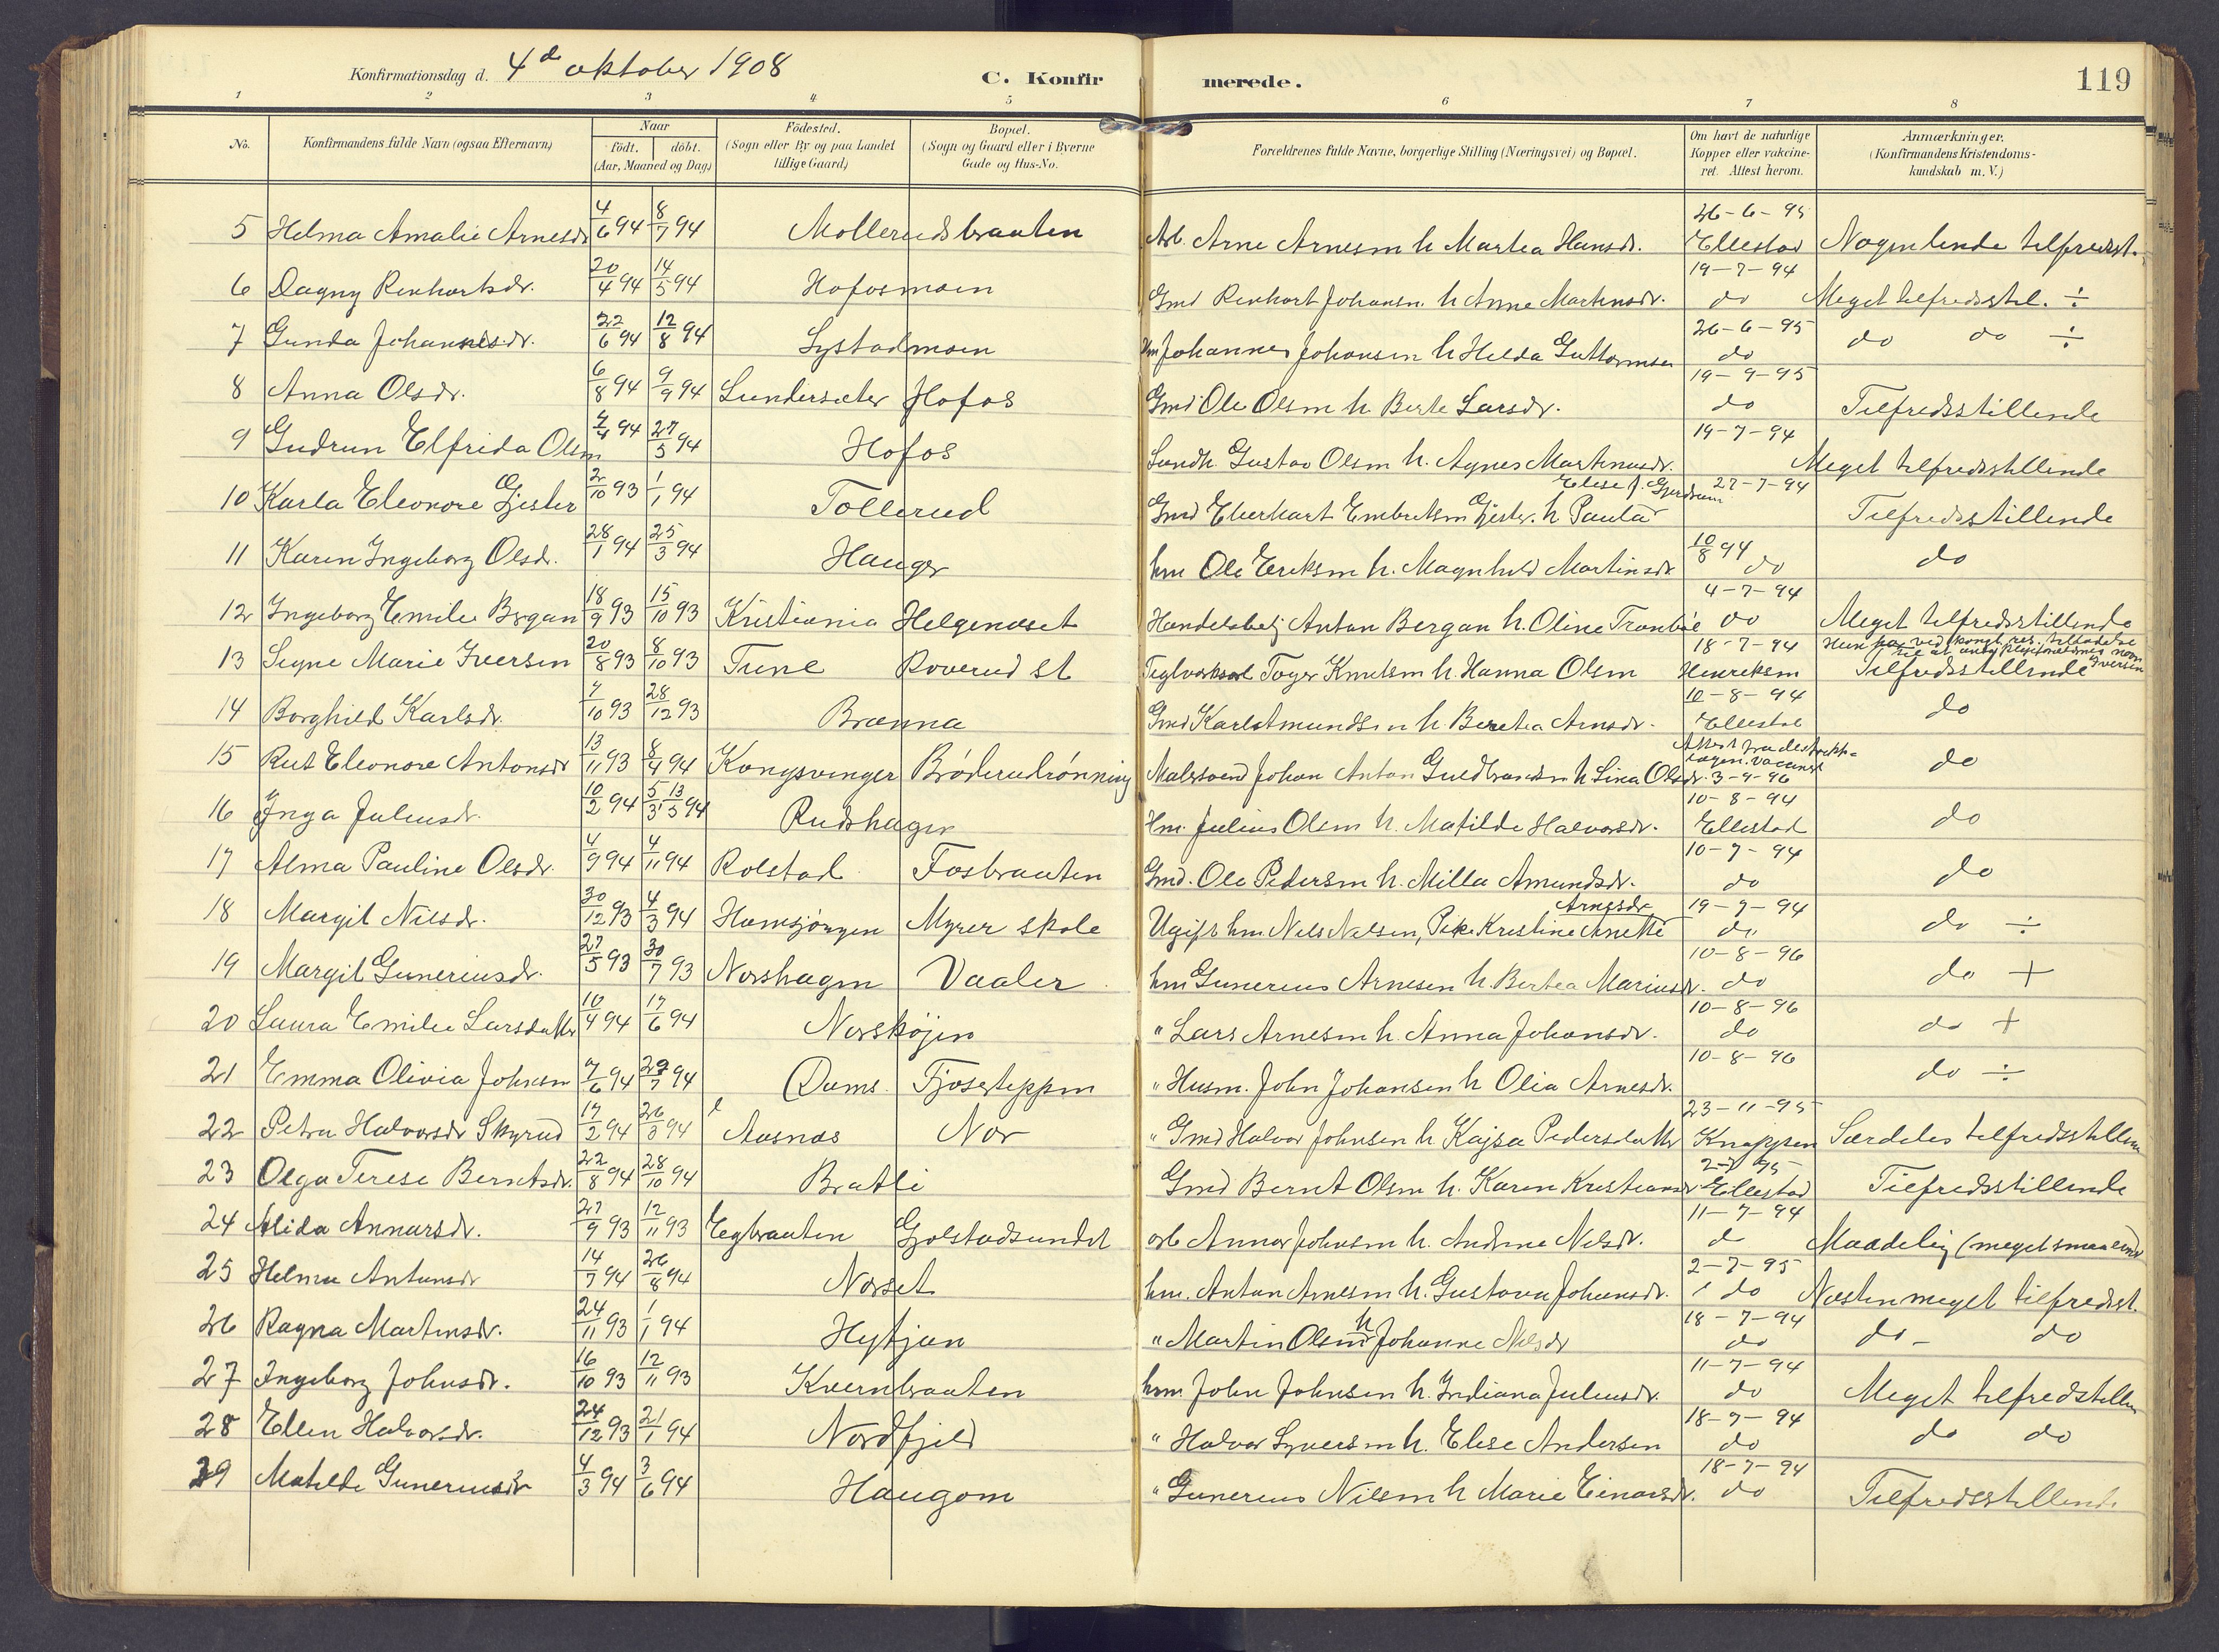 Konfirmationsdag d. 4de oktober 1908 C. Konfirmerede. 119
1 2 3 4 5 6 7 8
No. Konfirmandens fulde Navn (ogsaa Efternavn) Naar födt. döbt. (Aar, Maaned og Dag) Födested. (Sogn eller By og paa Landet tillige Gaard) Bopæl. (Sogn og Gaard eller i Byerne Gade og Hus-No. Forældrenes fulde Navne, borgerlige Stilling (Næringsvei) og Bopæl. Om havt de naturlige Kopper eller vakcineret. Attest herom. Anmærkninger. (Konfirmandens Kristendomskundskab m. V.)
5 Helma Amalie Arnesdr 4/6 94 8/7 94 Mollerudsbraaten Arb. Arne Arnesen h Martea Hansdr. 26-6-95 Ellestad Nogenlunde tilfredsst.
6 Dagny Renhartsdr. 20/4 94 14/5 94 Hofosmoen Gmd Renhart Johansn. h Anne Martinsdr. 19-7-94 do Meget tilfredsstil. ÷
7 Gunda Johannesdr. 22/6 94 12/8 94 Systadmoen Hm Johannes Johansen h Helda Guttormsen 26-6-95 do do do ÷
8 Anna Olsdr. 6/8 94 9/9 94 Lundersæter Hofos Gmd Ole Olsen h. Berte Larsdr. 19-9-95 do Tilfredsstillende
9 Gudrun Elfrida Olsen 94 27/5 94 Hofos Landh. Gustav Olsen h. Agnes Martinusdr. 19-7-94 Meget tilfredsstillende
10 Karla Eleonore Gjester 2/10 93 1/1 94 Tollerud Gmd Eberhart Embretsen Gjester. h Paula Elise J. Gjerdrum 27-7-94 Tilfredsstillende
11 Karen Ingeborg Olsdr. 28/1 94 25/3 94 Hauger hm Ole Eriksen h. Magnhild Martinsdr 10/8 94 do do
12 Ingeborg Emilie Bergan 18/9 93 15/10 93 Kristiania Helgenæset Handelsbetj Anton Bergan h. Oline Tranbøe 4-7-94 do Meget tilfredsstillende
13 Signe Marie Iversen 20/8 93 8/10 93 Tune Roverud st Teglverksarb Toger Knutsen h. Hanna Olsen 18-7-94 Henriksen Hun har ved kongl. res. tilladelse til at antage Plejeforældrenes navn Iversen Tilfredsstillende
14 Borghild Karlsdr. 7/10 93 28/12 93 Brænna Gmd Karl Amundsen h. Beretea Arnesdr. 10-8-94 Ellestad do
15 Rut Eleonore Antonsdr 13/11 93 8/4 94 Kongsvinger Bröderudrönning Malersvend Johan Anton Guldbrandsen h Lina Olsdr. Attest fra 3-4-96 do
16 Inga Juliusdr. 10/2 94 5/3 13/5 94 Rudshagen Hm. Julius Olsen h. Matilde Halvorsdr. 10-8-94 Ellestad do
17 Alma Pauline Olsdr. 4/9 94 4/11 94 Rolstad Fosbraaten Gmd. Ole Pedersen h. Milla Amundsdr. 10-7-94 do do
18 Margit Nilsdr. 30/12 93 4/3 94 Hamsjöngen Myrer skole Ugift hm. Nils Nilsen, Pike Kristine Anette Arnesdr. 19-7-94 do. do ÷
19 Margit Guneriusdr. 27/5 93 30/7 93 Norshagen Vaaler hm Gunerius Arnesen h. Bertea Mariusdr. 10-8-96 do do +
20 Laura Emilie Larsdatter 10/4 94 17/6 94 Norsköjen " Lars Arnesen h. Anna Johansdr. 10-8-96 do do +
21 Emma Olivia Johnsen 7/6 94 29/7 94 Dams Fjoseteppen " Husm. John Johansen h Olia Arnesdr. 10-8-96 do ÷
22 Petra Halvorsdr Skyrud 17/2 94 26/3 94 Aasnæs Nor " Gmd Halvor Johnsen h Kajsa Pedersdatter 23-11-95 Knappen Særdeles tilfredsstillen
23 Olga Terese Berntsdr. 22/8 94 28/10 94 Bratli Gmd Bernt Olsen h. Karen Kristiansdr 2-7 95 Ellestad Tilfredsstillende
24 Alida Annarsdr. 27/9 93 12/11 93 Egbraaten Gjolstadsundet arb Annar Johnsen h. Andrine Nilsdr. 11-7-94 d Maadelig (meget
25 Helma Antonsdr 14/7 94 26/8 94 Norset hm. Anton Arnesen h. Gustava Johansdr. 2-7-95 do Næsten meget tilfredsst.
26 Ragna Martinsdr. 24/11 93 1/1 94 Hytjan " Martin Olsen h Johanne Nilsdr 18-7-94 do do - do
27 Ingeborg Johnsdr. 16/10 93 12/11 93 Kvernbraaten hm. John Johnsen h. Indiana Juliusdr. 11-7-94 do Meget tilfredstillen
28 Ellen Halvorsdr. 24/12 93 21/1 94 Nordfjeld " Halvor Syversen h. Elise Andersen 18-7-94 do do do
29 Matilde Guneriusdr 4/3 94 3/6 94 Haugom " Gunerius Nilsen h Marie Einarsdr. 18-7-94 do Tilfredsstillende